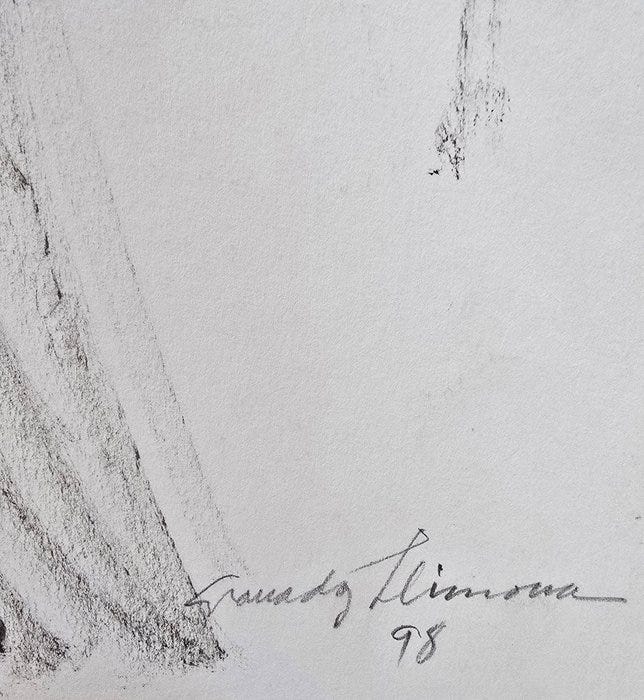 Granados Llimona
98